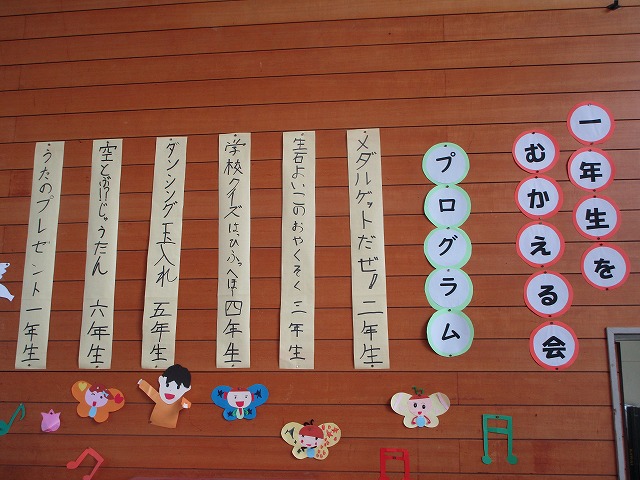 一年生を
むかえる会
プログラム
メダルゲットだぜ!二年生
生石よいこのおやくそく三年生
学校クイズはひふへほ!四年生
ダンシング玉入れ 五年生
空とぶ!?じゅうたん 六年生
うたのプレゼント一年生